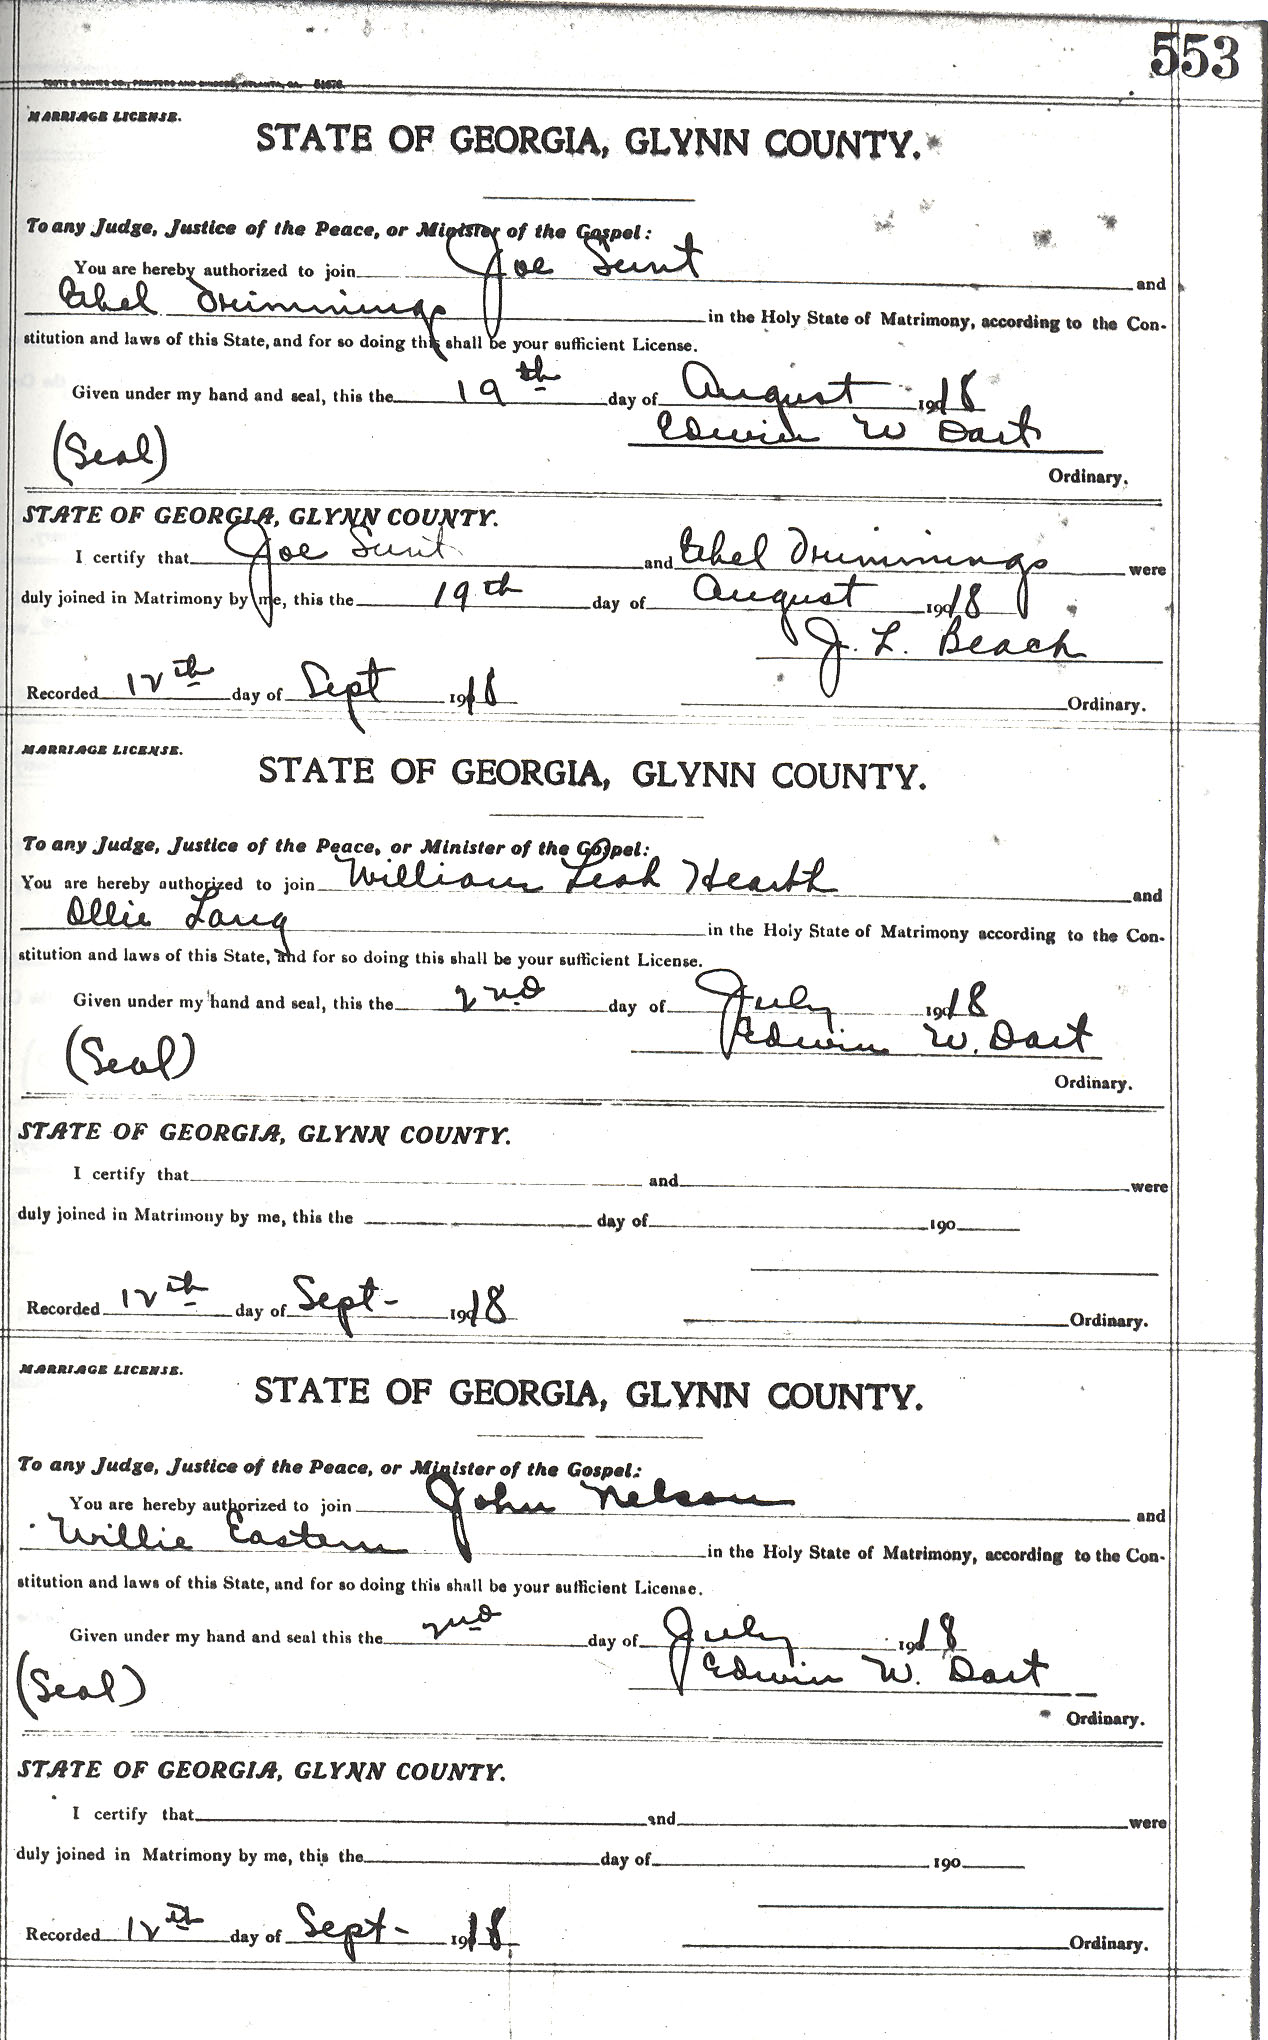 553
FOOTE & DAVIES CO., PRINTERS AND BINDERS, ATLANTA, GA. 51676
MARRIAGE LICENSE.
STATE OF GEORGIA, GLYNN COUNTY.
To any Judge, Justice of the Peace, or Minister of the Gospel:
You are hereby authorized to join Joe Sunt and
Ethel Drimmings in the Holy State of Matrimony, according to the Con-
stitution and laws of this State, and for so doing this shall be your sufficient License.
Given under my hand and seal, this the 19th day of August 1918
Edwin W Dart
(Seal)
Ordinary.
STATE OF GEORGIA, GLYNN COUNTY.
I certify that Joe Sunt and Ethel Drimmings were
duly joined in Matrimony by me, this the 19th day of August 1918
J. L. Beach
Recorded 12th day of Sept 1918 Ordinary.
MARRIAGE LICENSE.
STATE OF GEORGIA, GLYNN COUNTY.
To any Judge, Justice of the Peace, or Minister of the Gospel:
You are hereby authorized to join William Hearth and
Ollie Lang in the Holy State of Matrimony according to the Con-
stitution and laws of this State, and for so doing this shall be your sufficient License.
Given under my hand and seal, this the 2nd day of July 1918
Edwin W. Dart
(Seal)
Ordinary.
STATE OF GEORGIA, GLYNN COUNTY.
I certify that and were
duly joined in Matrimony by me, this the day of 190
Recorded 12th day of Sept- 1918 Ordinary.
MARRIAGE LICENSE.
STATE OF GEORGIA, GLYNN COUNTY.
To any Judge, Justice of the Peace, or Minister of the Gospel:
You are hereby authorized to join John Nelson and
Willie Eastern in the Holy State of Matrimony, according to the Con-
stitution and laws of this State, and for so doing this shall be your sufficient License.
Given under my hand and seal this the 2nd day of July 1918
Edwin W. Dart
(Seal)
Ordinary.
STATE OF GEORGIA, GLYNN COUNTY.
I certify that and were
duly joined in Matrimony by me, this the day of 190
Recorded 12th day of Sept- 1918 Ordinary.